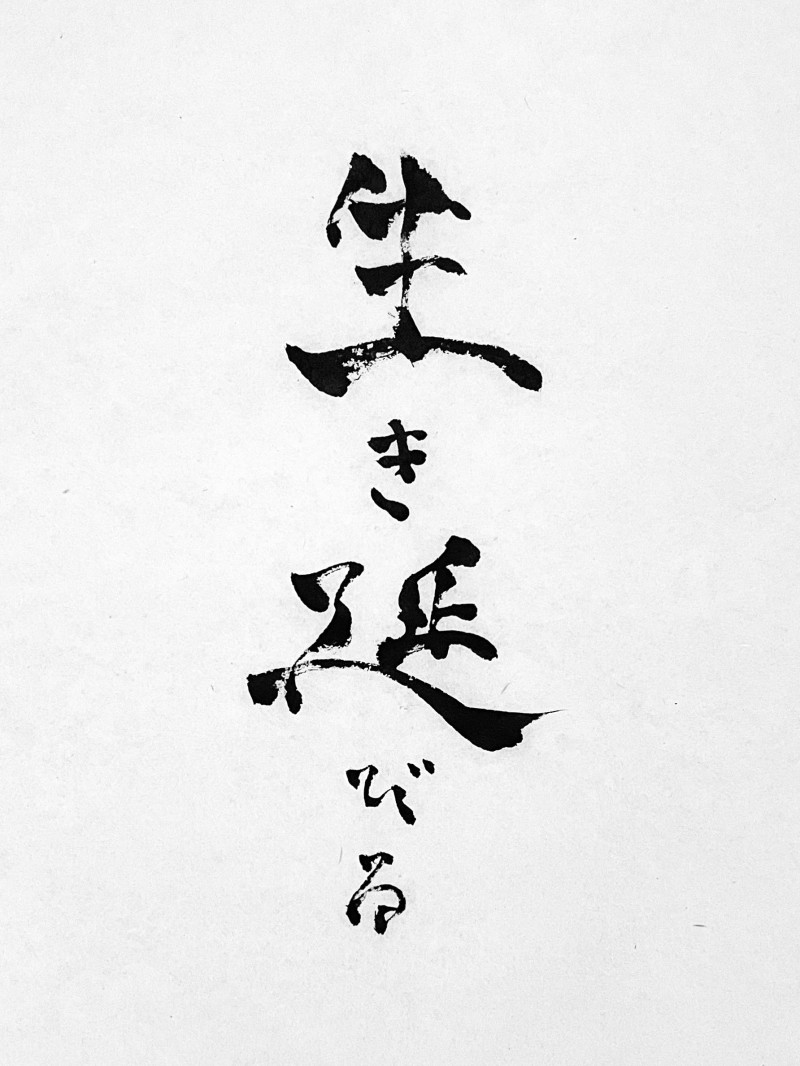 生き延びる